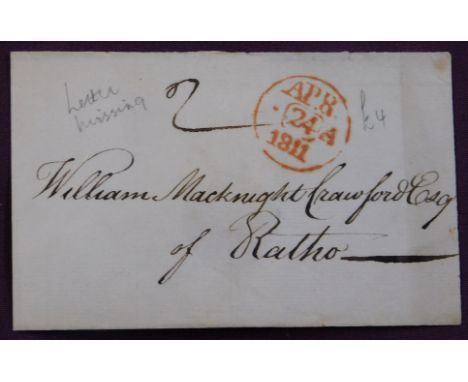 Letter
missing
2
APR
24 A
1811
£4
William Macknight Crawford Esq
of Ratho